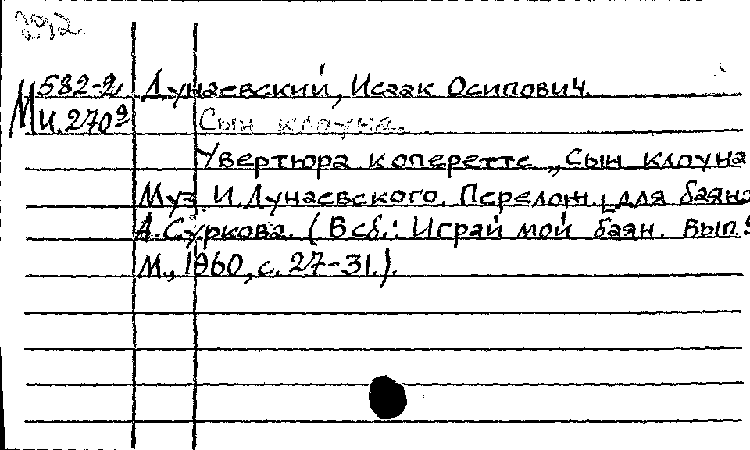 М 582-2 Дунаевский, Исаак Осипович.
И.270 9 Сын клоуна.
Увертюра к оперетте „Сын клоуна
Муз. И. Дунаевского. Перелож. для баяна
А. Суркова. (В сб.: Играй мой баян. Вып. 9
М., 1960, с. 27-31.).